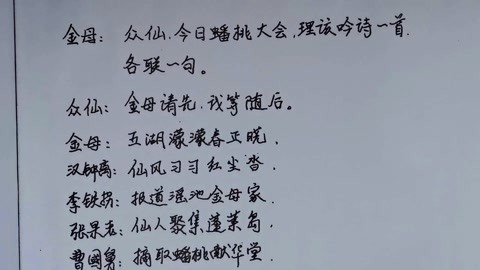 金母：众仙.今日蟠挑大会,理该吟诗一首.
各联一句。
众仙：金母请先,我等随后。
金母：五湖濛濛春正晓.
汉钟离：仙风习习红尘沓.
李铁拐：报道瑶池金母家.
张果老：仙人聚集蓬莱岛.
曹国舅：摘取蟠挑献华堂.